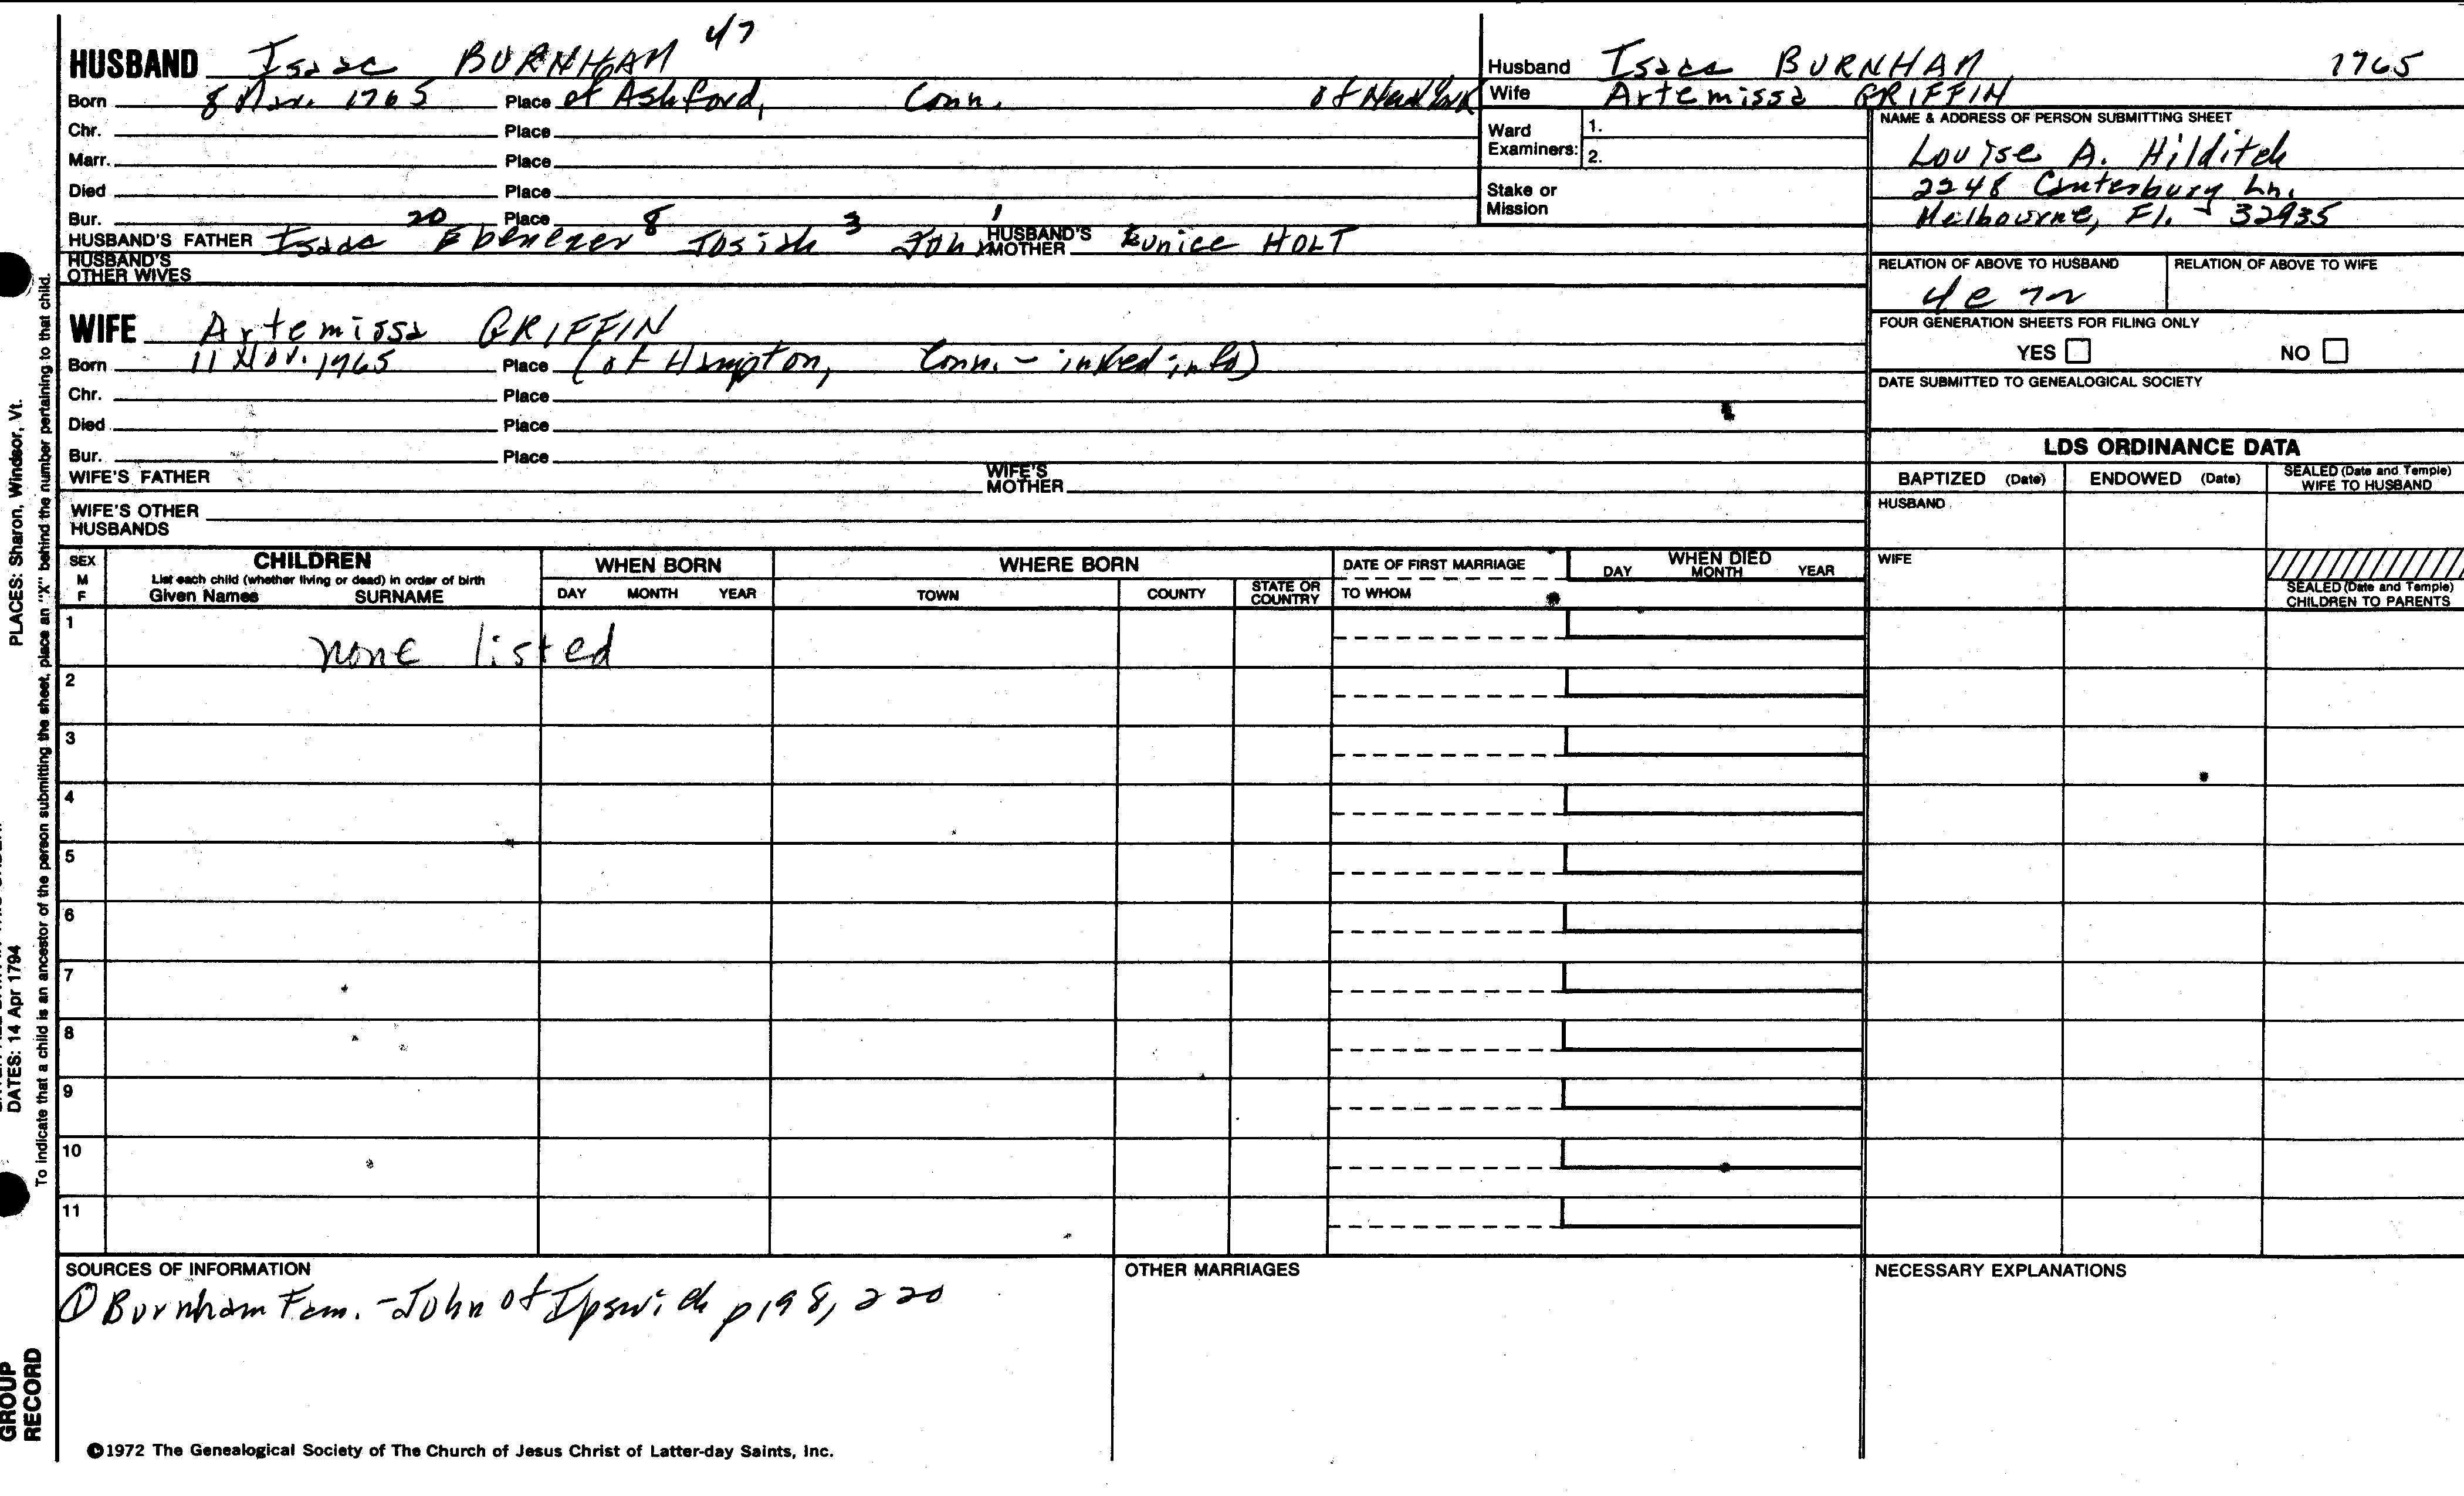 HUSBAND Isaac BURNHAM 47
Born 8 Mar. 1765 Place of Ashford, Conn. of New York
Chr. Place
Marr. Place
Died Place
Bur. Place
20 8 3 1
HUSBAND'S FATHER Isaac Ebenezer Josiah John HUSBAND'S MOTHER Eunice HOLT
HUSBAND'S OTHER WIVES
WIFE Artemissa GRIFFIN
Born 11 Nov. 1965 Place (of Hampton, Conn. - inked info)
Chr. Place
Died Place
Bur. Place
WIFE'S FATHER WIFE'S MOTHER
WIFE'S OTHER HUSBANDS
Husband Isaac BURNHAM 1765
Wife Artemissa GRIFFIN
Ward Examiners: 1.
2.
Stake or Mission
NAME & ADDRESS OF PERSON SUBMITTING SHEET
Louise A. Hilditch
2248 Canterbury Ln.
Melbourne, Fl. - 32935
RELATION OF ABOVE TO HUSBAND RELATION OF ABOVE TO WIFE
FOUR GENERATION SHEETS FOR FILING ONLY
YES NO
DATE SUBMITTED TO GENEALOGICAL SOCIETY
LDS ORDINANCE DATA
BAPTIZED (Date) ENDOWED (Date) SEALED (Date and Temple) WIFE TO HUSBAND
HUSBAND
WIFE
SEALED (Date and Temple) CHILDREN TO PARENTS
SEX M F
CHILDREN
List each child (whether living or dead) in order of birth
Given Names SURNAME
WHEN BORN
DAY MONTH YEAR
WHERE BORN
TOWN COUNTY STATE OR COUNTRY
DATE OF FIRST MARRIAGE
TO WHOM
WHEN DIED
DAY MONTH YEAR
1 none listed
2
3
4
5
6
7
8
9
10
11
SOURCES OF INFORMATION
① Burnham Fam. - John of Ipswich p198, 220
OTHER MARRIAGES
NECESSARY EXPLANATIONS
©1972 The Genealogical Society of The Church of Jesus Christ of Latter-day Saints, Inc.
PLACES: Sharon, Windsor, Vt.
DATES: 14 Apr 1794
To indicate that a child is an ancestor of the person submitting the sheet, place an "X" behind the number pertaining to that child.
GROUP RECORD